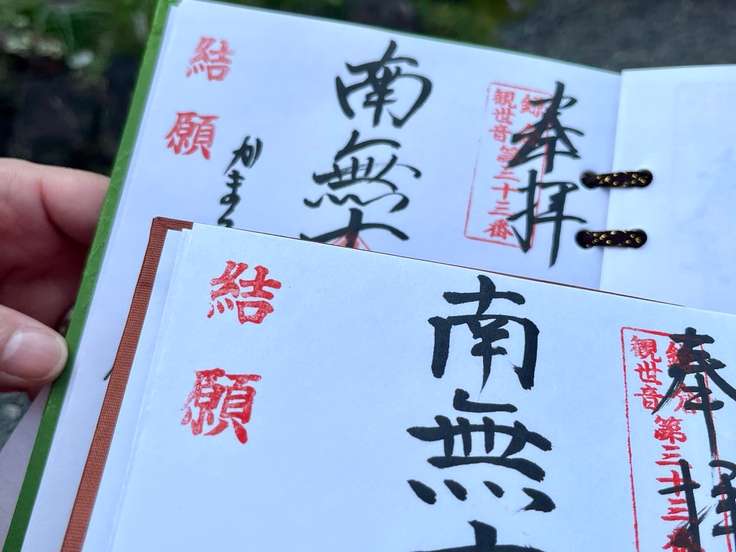 奉拝
鎌倉
観世音
第三十三番
南無
かま
結願
奉拝
鎌倉
観世音
第三十三番
南無
結願